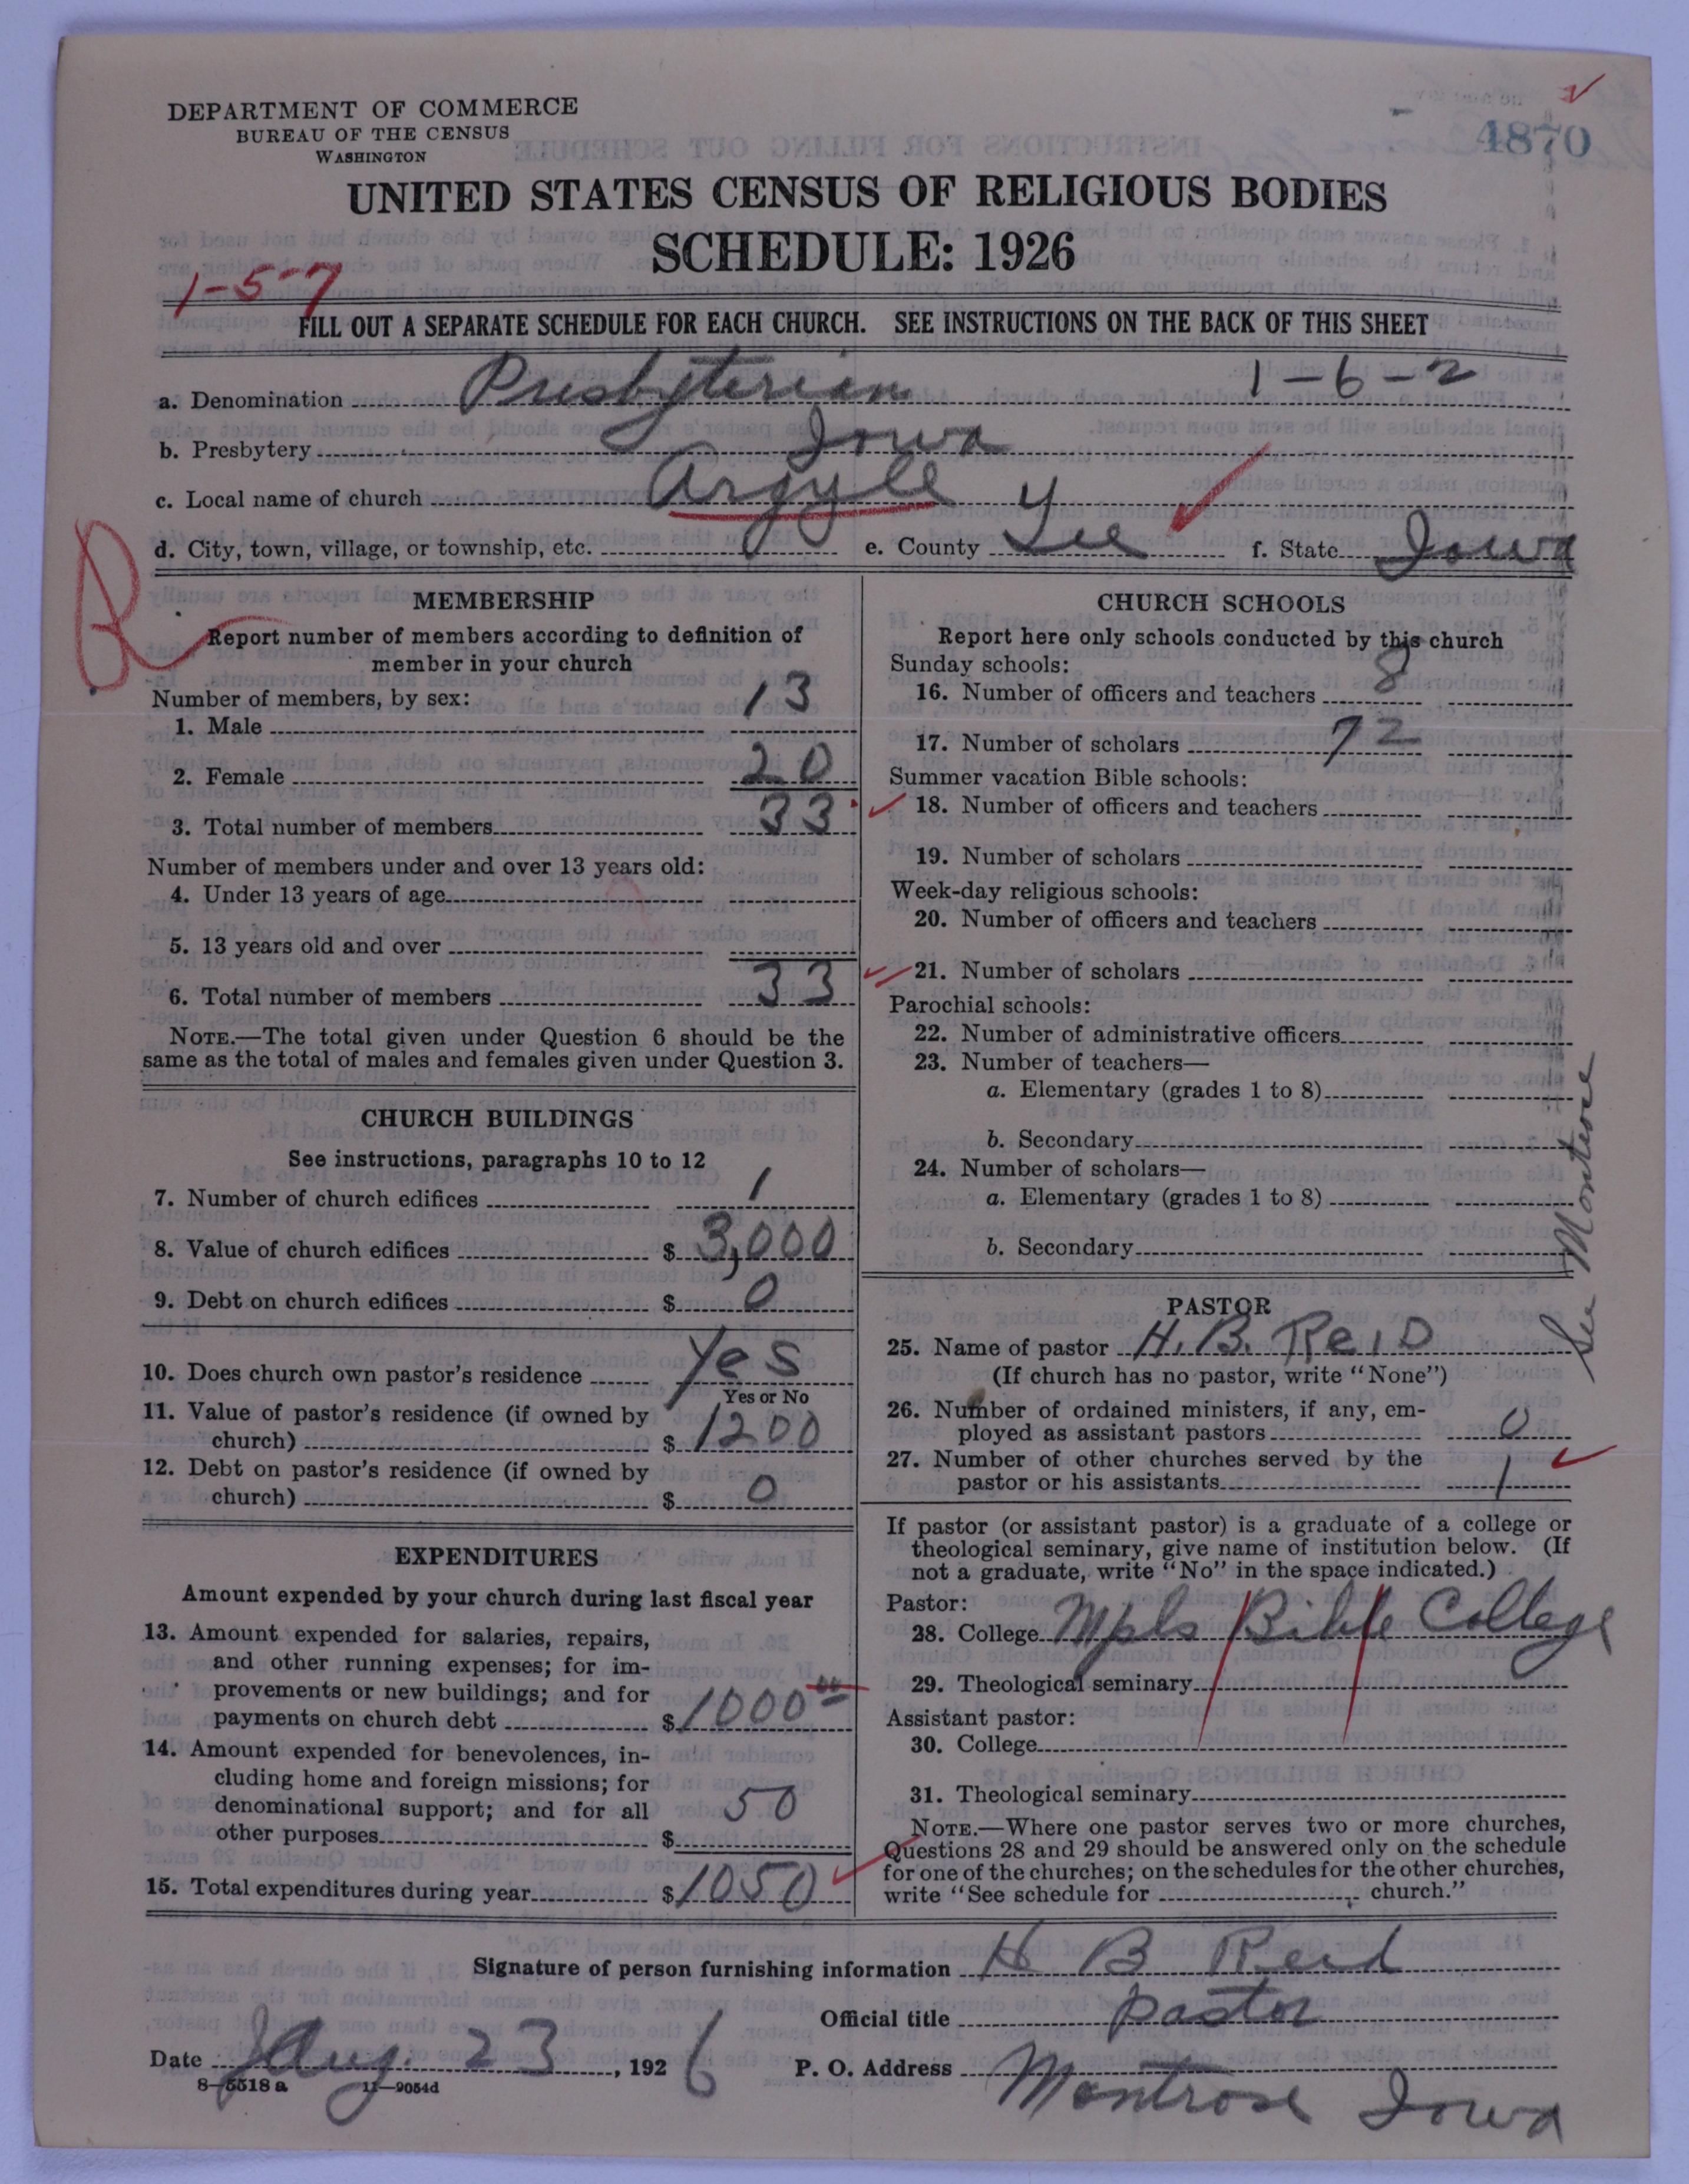 DEPARTMENT OF COMMERCE
BUREAU OF THE CENSUS
WASHINGTON
4870
UNITED STATES CENSUS OF RELIGIOUS BODIES
SCHEDULE: 1926
1-5-7
FILL OUT A SEPARATE SCHEDULE FOR EACH CHURCH. SEE INSTRUCTIONS ON THE BACK OF THIS SHEET
a. Denomination Presbyterian 1-6-2
b. Presbytery Iowa
c. Local name of church Argyle
d. City, town, village, or township, etc. e. County Lee f. State Iowa
R
MEMBERSHIP
Report number of members according to definition of
member in your church
Number of members, by sex:
1. Male 13
2. Female 20
3. Total number of members 33
Number of members under and over 13 years old:
4. Under 13 years of age
5. 13 years old and over
6. Total number of members 33
NOTE.—The total given under Question 6 should be the
same as the total of males and females given under Question 3.
CHURCH BUILDINGS
See instructions, paragraphs 10 to 12
7. Number of church edifices 1
8. Value of church edifices $ 3,000
9. Debt on church edifices $ 0
10. Does church own pastor's residence Yes
Yes or No
11. Value of pastor's residence (if owned by
church) $ 1200
12. Debt on pastor's residence (if owned by
church) $ 0
EXPENDITURES
Amount expended by your church during last fiscal year
13. Amount expended for salaries, repairs,
and other running expenses; for im-
provements or new buildings; and for
payments on church debt $ 1000 00
14. Amount expended for benevolences, in-
cluding home and foreign missions; for
denominational support; and for all
other purposes $ 50
15. Total expenditures during year $ 1050
CHURCH SCHOOLS
Report here only schools conducted by this church
Sunday schools:
16. Number of officers and teachers 8
17. Number of scholars 72
Summer vacation Bible schools:
18. Number of officers and teachers
19. Number of scholars
Week-day religious schools:
20. Number of officers and teachers
21. Number of scholars
Parochial schools:
22. Number of administrative officers
23. Number of teachers—
a. Elementary (grades 1 to 8)
b. Secondary
24. Number of scholars—
a. Elementary (grades 1 to 8)
b. Secondary
See Montrose
PASTOR
25. Name of pastor H. B. Reid
(If church has no pastor, write "None")
26. Number of ordained ministers, if any, em-
ployed as assistant pastors 0
27. Number of other churches served by the
pastor or his assistants 1
If pastor (or assistant pastor) is a graduate of a college or
theological seminary, give name of institution below. (If
not a graduate, write "No" in the space indicated.)
Pastor:
28. College Mpls Bible College
29. Theological seminary
Assistant pastor:
30. College
31. Theological seminary
NOTE.—Where one pastor serves two or more churches,
Questions 28 and 29 should be answered only on the schedule
for one of the churches; on the schedules for the other churches,
write "See schedule for church."
Signature of person furnishing information H B Reid
Official title pastor
Date Aug. 23, 1926 P. O. Address Montrose Iowa
8-5518 a 11-9054d